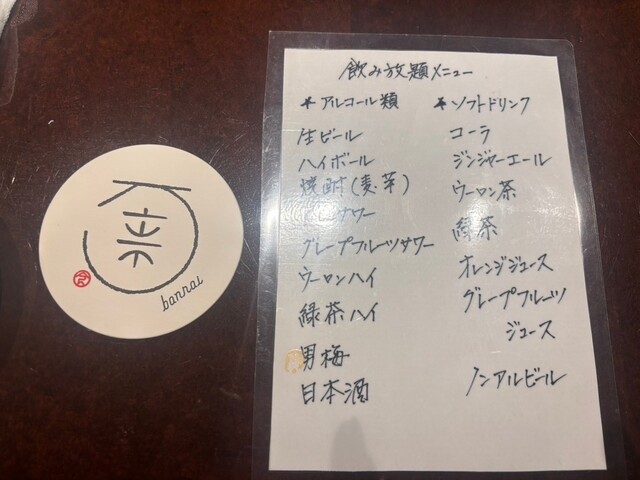 飲み放題メニュー
*アルコール類
生ビール
ハイボール
焼酎(麦、芋)
サワー
グレープフルーツサワー
ウーロンハイ
緑茶ハイ
男梅
日本酒
*ソフトドリンク
コーラ
ジンジャーエール
ウーロン茶
緑茶
オレンジジュース
グレープフルーツ
ジュース
ノンアルビール
bonrai